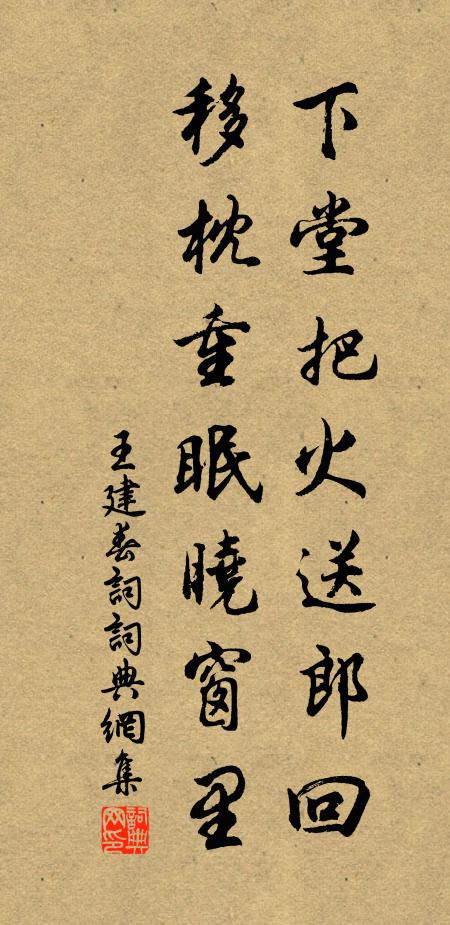 下堂把火送郎回
移枕重眠曉窗里
王建春詞詞典網集
詞典網印